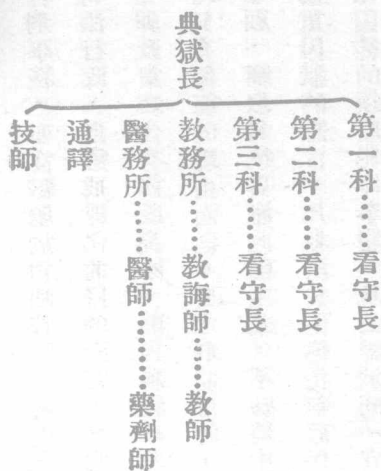 典獄長
第一科………看守長
第二科………看守長
第三科………看守長
教務所………教誨師………教師
醫務所………醫師………藥劑師
通譯
技師